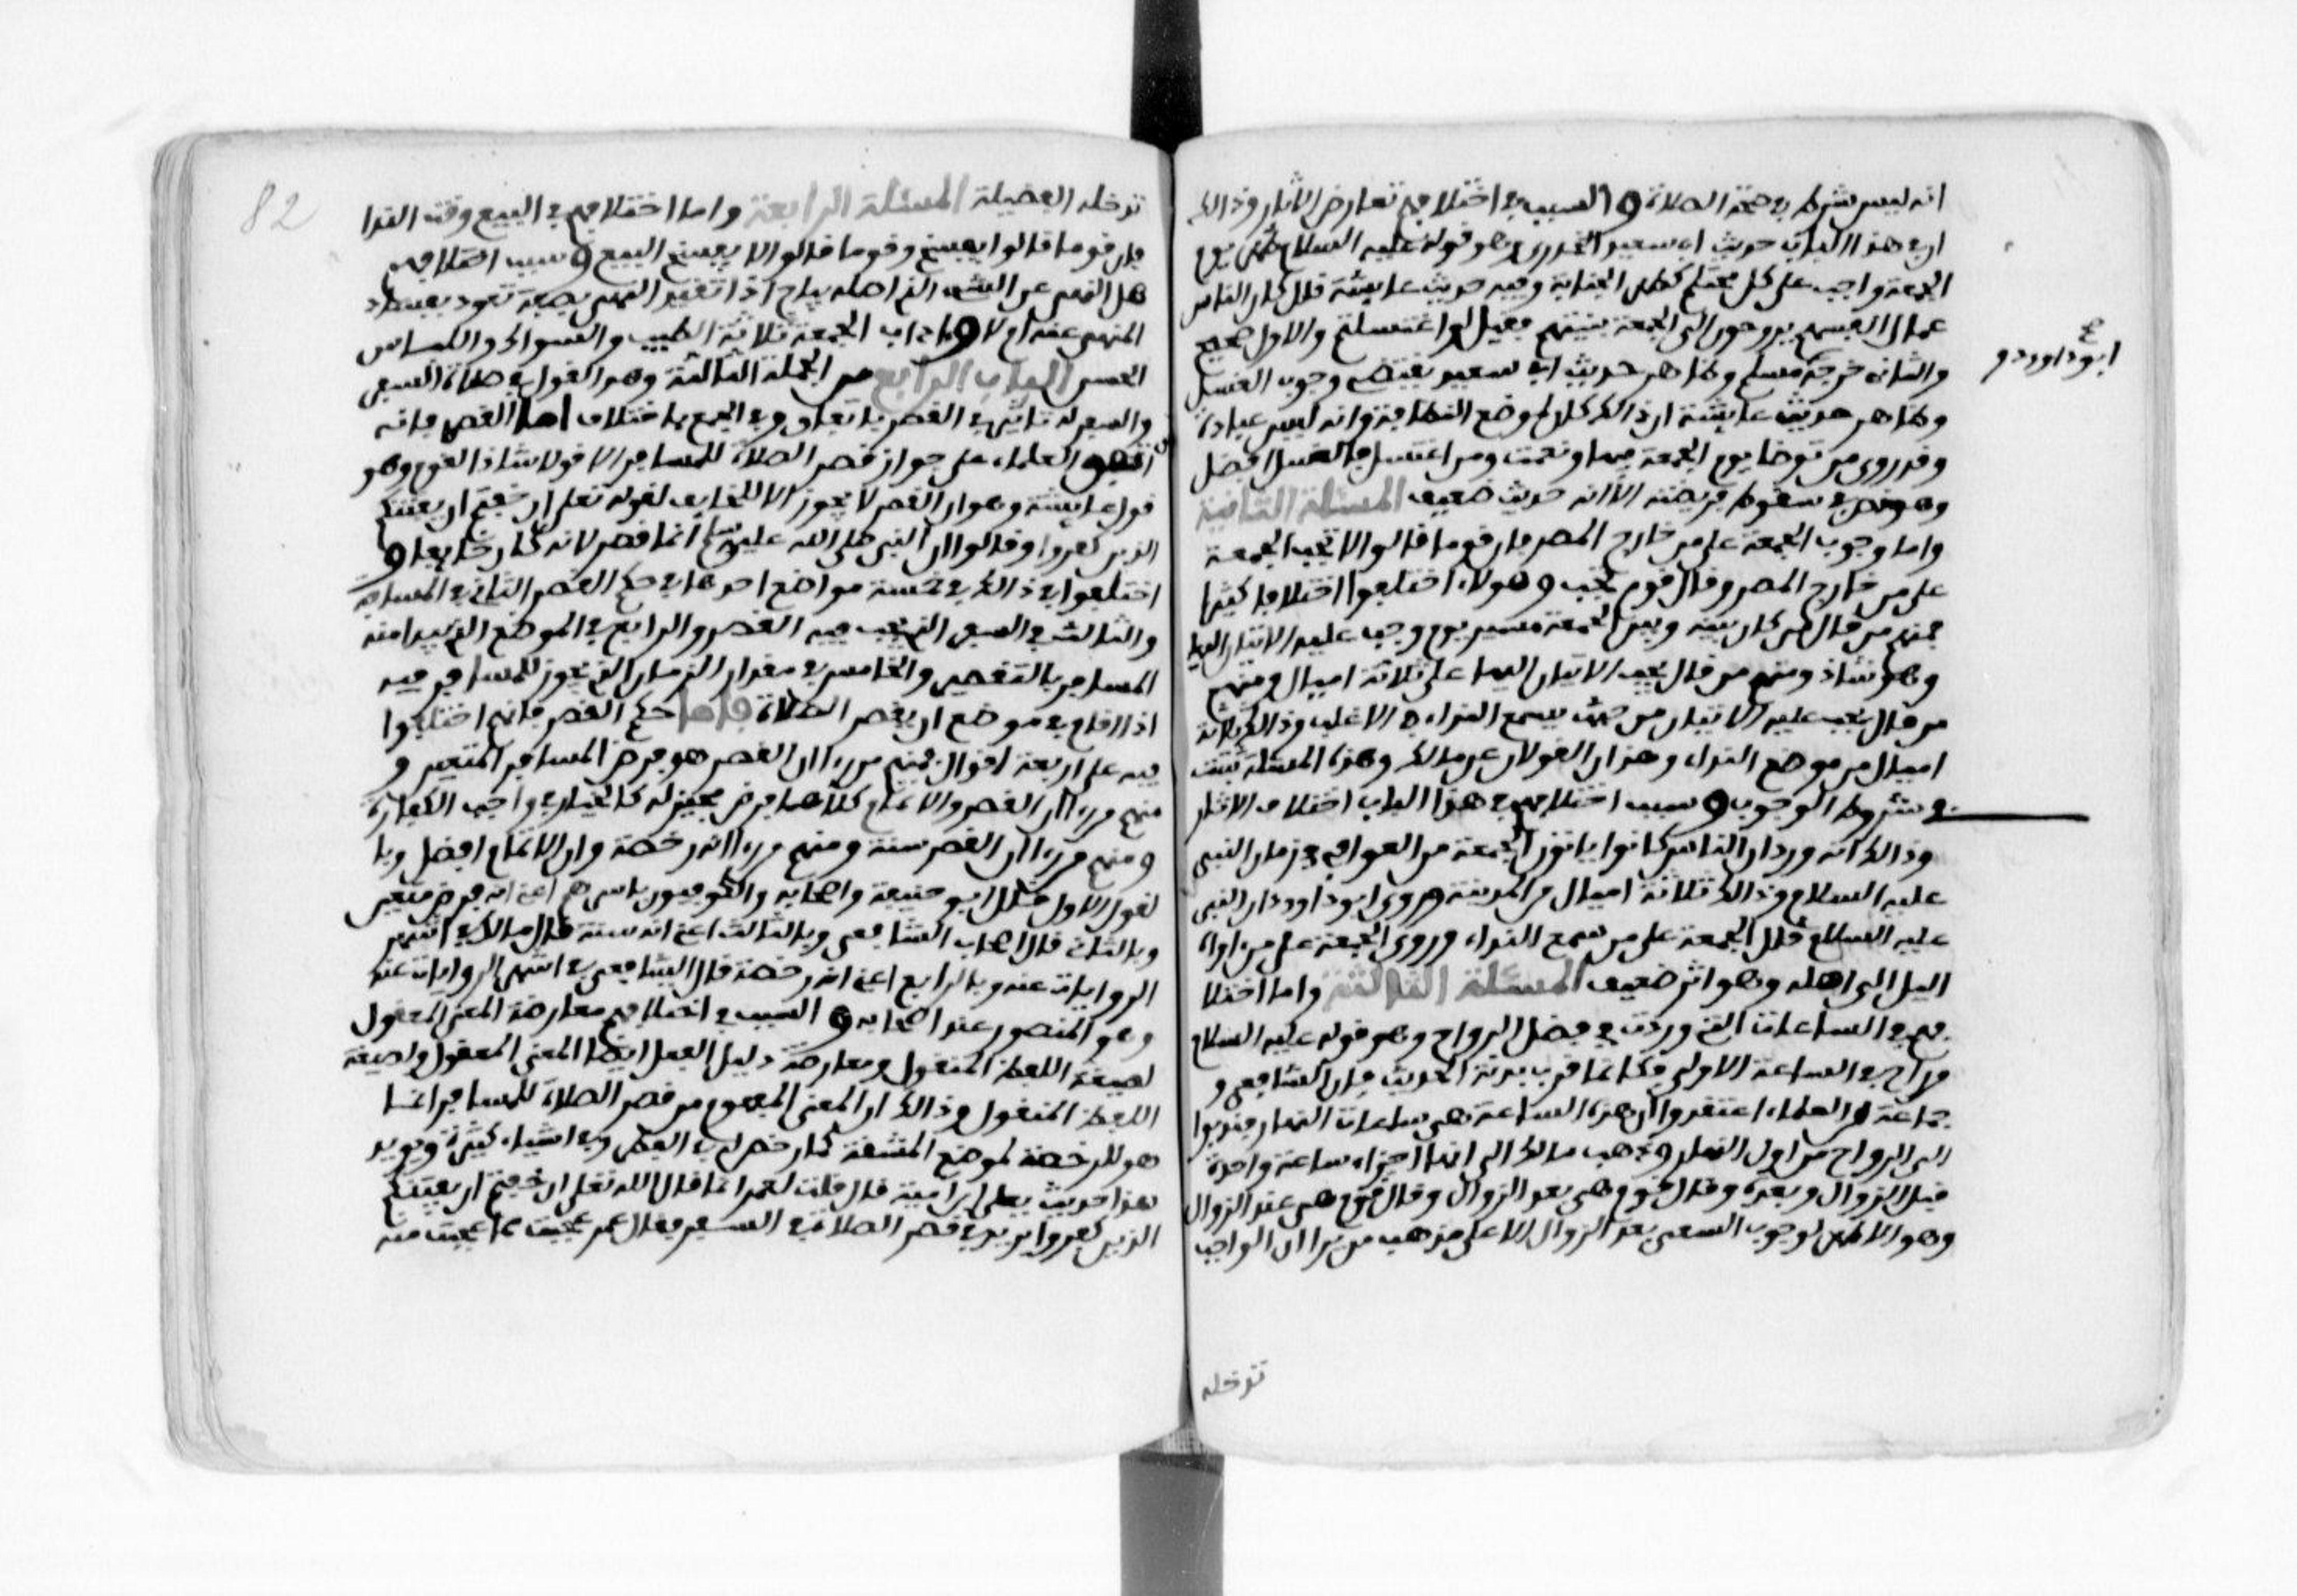 انه ليس شرط في صحة الصلاة والسبب في اختلافهم تعارض الاثار وذالك
ان في هذا الباب حديث ابي سعيد الخدري وهو قوله عليه السلام طهر يوم
الجمعة واجب على كل محتلم كطهر الجنابة وفيه حديث عايشة قالت كان الناس
عمال انفسهم يروحون الى الجمعة بهيئتهم فقيل لو اغتسلتم والاول صحيح
ابو داوود و
والثاني خرجه مسلم وظاهر حديث ابي سعيد يقتضي وجوب الغسل
وظاهر حديث عايشة ان ذالك كان لموضع النظافة وانه ليس عبادة
وقد روي من توضا يوم الجمعة فبها ونعمت ومن اغتسل فالغسل افضل
وهو نص في سقوط فريضته الا انه حديث ضعيف المسئلة الثانية
واما وجوب الجمعة على من خارج المصر فان قوما قالوا لا تجب الجمعة
على من خارج المصر وقال قوم تجب وهولاء اختلفوا اختلافا كثيرا
فمنهم من قال من كان بينه وبين الجمعة مسير يوم وجب عليه الاتيان اليها
وهو شاذ ومنهم من قال يجب الاتيان اليها على ثلاثة اميال ومنهم
من قال يجب عليه الاتيان من حيث يسمع النداء في الاغلب وذالك ثلاثة
اميال من موضع النداء وهذان القولان عن مالك وهذه المسئلة ثبتت
في شروط الوجوب وسبب اختلافهم في هذا الباب اختلاف الاثار
وذالك انه ورد ان الناس كانوا ياتون الجمعة من العوالي في زمان النبي
عليه السلام وذالك ثلاثة اميال من المدينة وروى ابو داوود ان النبي
عليه السلام قال الجمعة على من سمع النداء وروي الجمعة على من اواه
اليل الى اهله وهو اثر ضعيف المسئلة الثالثة واما اختلا
فهم في الساعات التي وردت في فضل الرواح وهو قوله عليه السلام
من راح في الساعة الاولى فكانما قرب بدنة الحديث فان الشافعي و
جماعة من العلماء اعتقدوا ان هذه الساعة هي ساعات النهار فندبوا
الى الرواح من اول النهار وذهب مالك الى انها اجزاء ساعة واحدة
قبل الزوال وبعده وقال قوم هي بعد الزوال وقال قوم هي عند الزوال
وهو الاظهر لوجوب السعي بعد الزوال الا على مذهب من يرا ان الواجب
تدخله
82
تدخله الفضيلة المسئلة الرابعة واما اختلافهم في البيع وقت الندا
فان قوما قالوا يفسخ وقوما قالوا لا يفسخ البيع وسبب اختلافهم
هل النهي عن الشيء الذي اصله مباح اذا تقيد النهي بصفة تعود بفساد
المنهي عنه ام لا واداب الجمعة ثلاثة الطيب والسواك واللباس
الحسن الباب الرابع من الجملة الثالثة وهو القول في صلاة السفر
والسفر له تاثير في القصر باتفاق وفي الجمع باختلاف اما القصر فانه
اتفق العلماء على جواز قصر الصلاة للمسافر الا قولا شاذا لقوم وهو
قول عايشة وهو ان القصر لا يجوز الا للخايف لقوله تعلى ان خفتم ان يفتنكم
الذين كفروا وقالوا ان النبي صلى الله عليه وسلم انما قصر لانه كان خايفا و
اختلفوا في ذالك في خمسة مواضع احدها في حكم القصر الثاني في المسافة
والثالث في السفر الذي يجب فيه القصر والرابع في الموضع الذي يبدا منه
المسافر بالتقصير والخامس في مقدار الزمان الذي يجوز للمسافر فيه
اذا اقام في موضع ان يقصر الصلاة فاما حكم القصر فانهم اختلفوا
فيه على اربعة اقوال فمنهم من راا ان القصر هو فرض المسافر المتعين و
منهم من راا ان القصر والاتمام كلاهما فرض مخير له كالخيار في واجب الكفارة
ومنهم من راا ان القصر سنة ومنهم من راا انه رخصة وان الاتمام افضل وبا
لقول الاول قال ابو حنيفة واصحابه والكوفيون باسرهم اعني انه فرض متعين
وبالثاني قال اصحاب الشافعي وبالثالث اعني انه سنة قال مالك في اشهر
الروايات عنه وبالرابع اعني انه رخصة قال الشافعي في اشهر الروايات عنه
وهو المنصور عند اصحابه والسبب في اختلافهم معارضة المعنى المعقول
لصيغة اللفظ المنقول ومعارضة دليل الفعل ايضا المعنى المعقول ولصيغة
اللفظ المنقول وذالك ان المعنى المفهوم من قصر الصلاة للمسافر انما
هو للرخصة لموضع المشقة كما رخص له في الفطر وفي اشياء كثيرة ويويد
هذا حديث يعلى ابن امية قال قلت لعمر انما قال الله تعلى ان خفتم ان يفتنكم
الذين كفروا يريد في قصر الصلاة في السفر فقال عمر عجبت مما عجبت منه